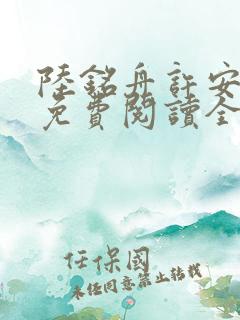 陸銘舟許安
免費閱讀全
任保國
未经同意禁止转载